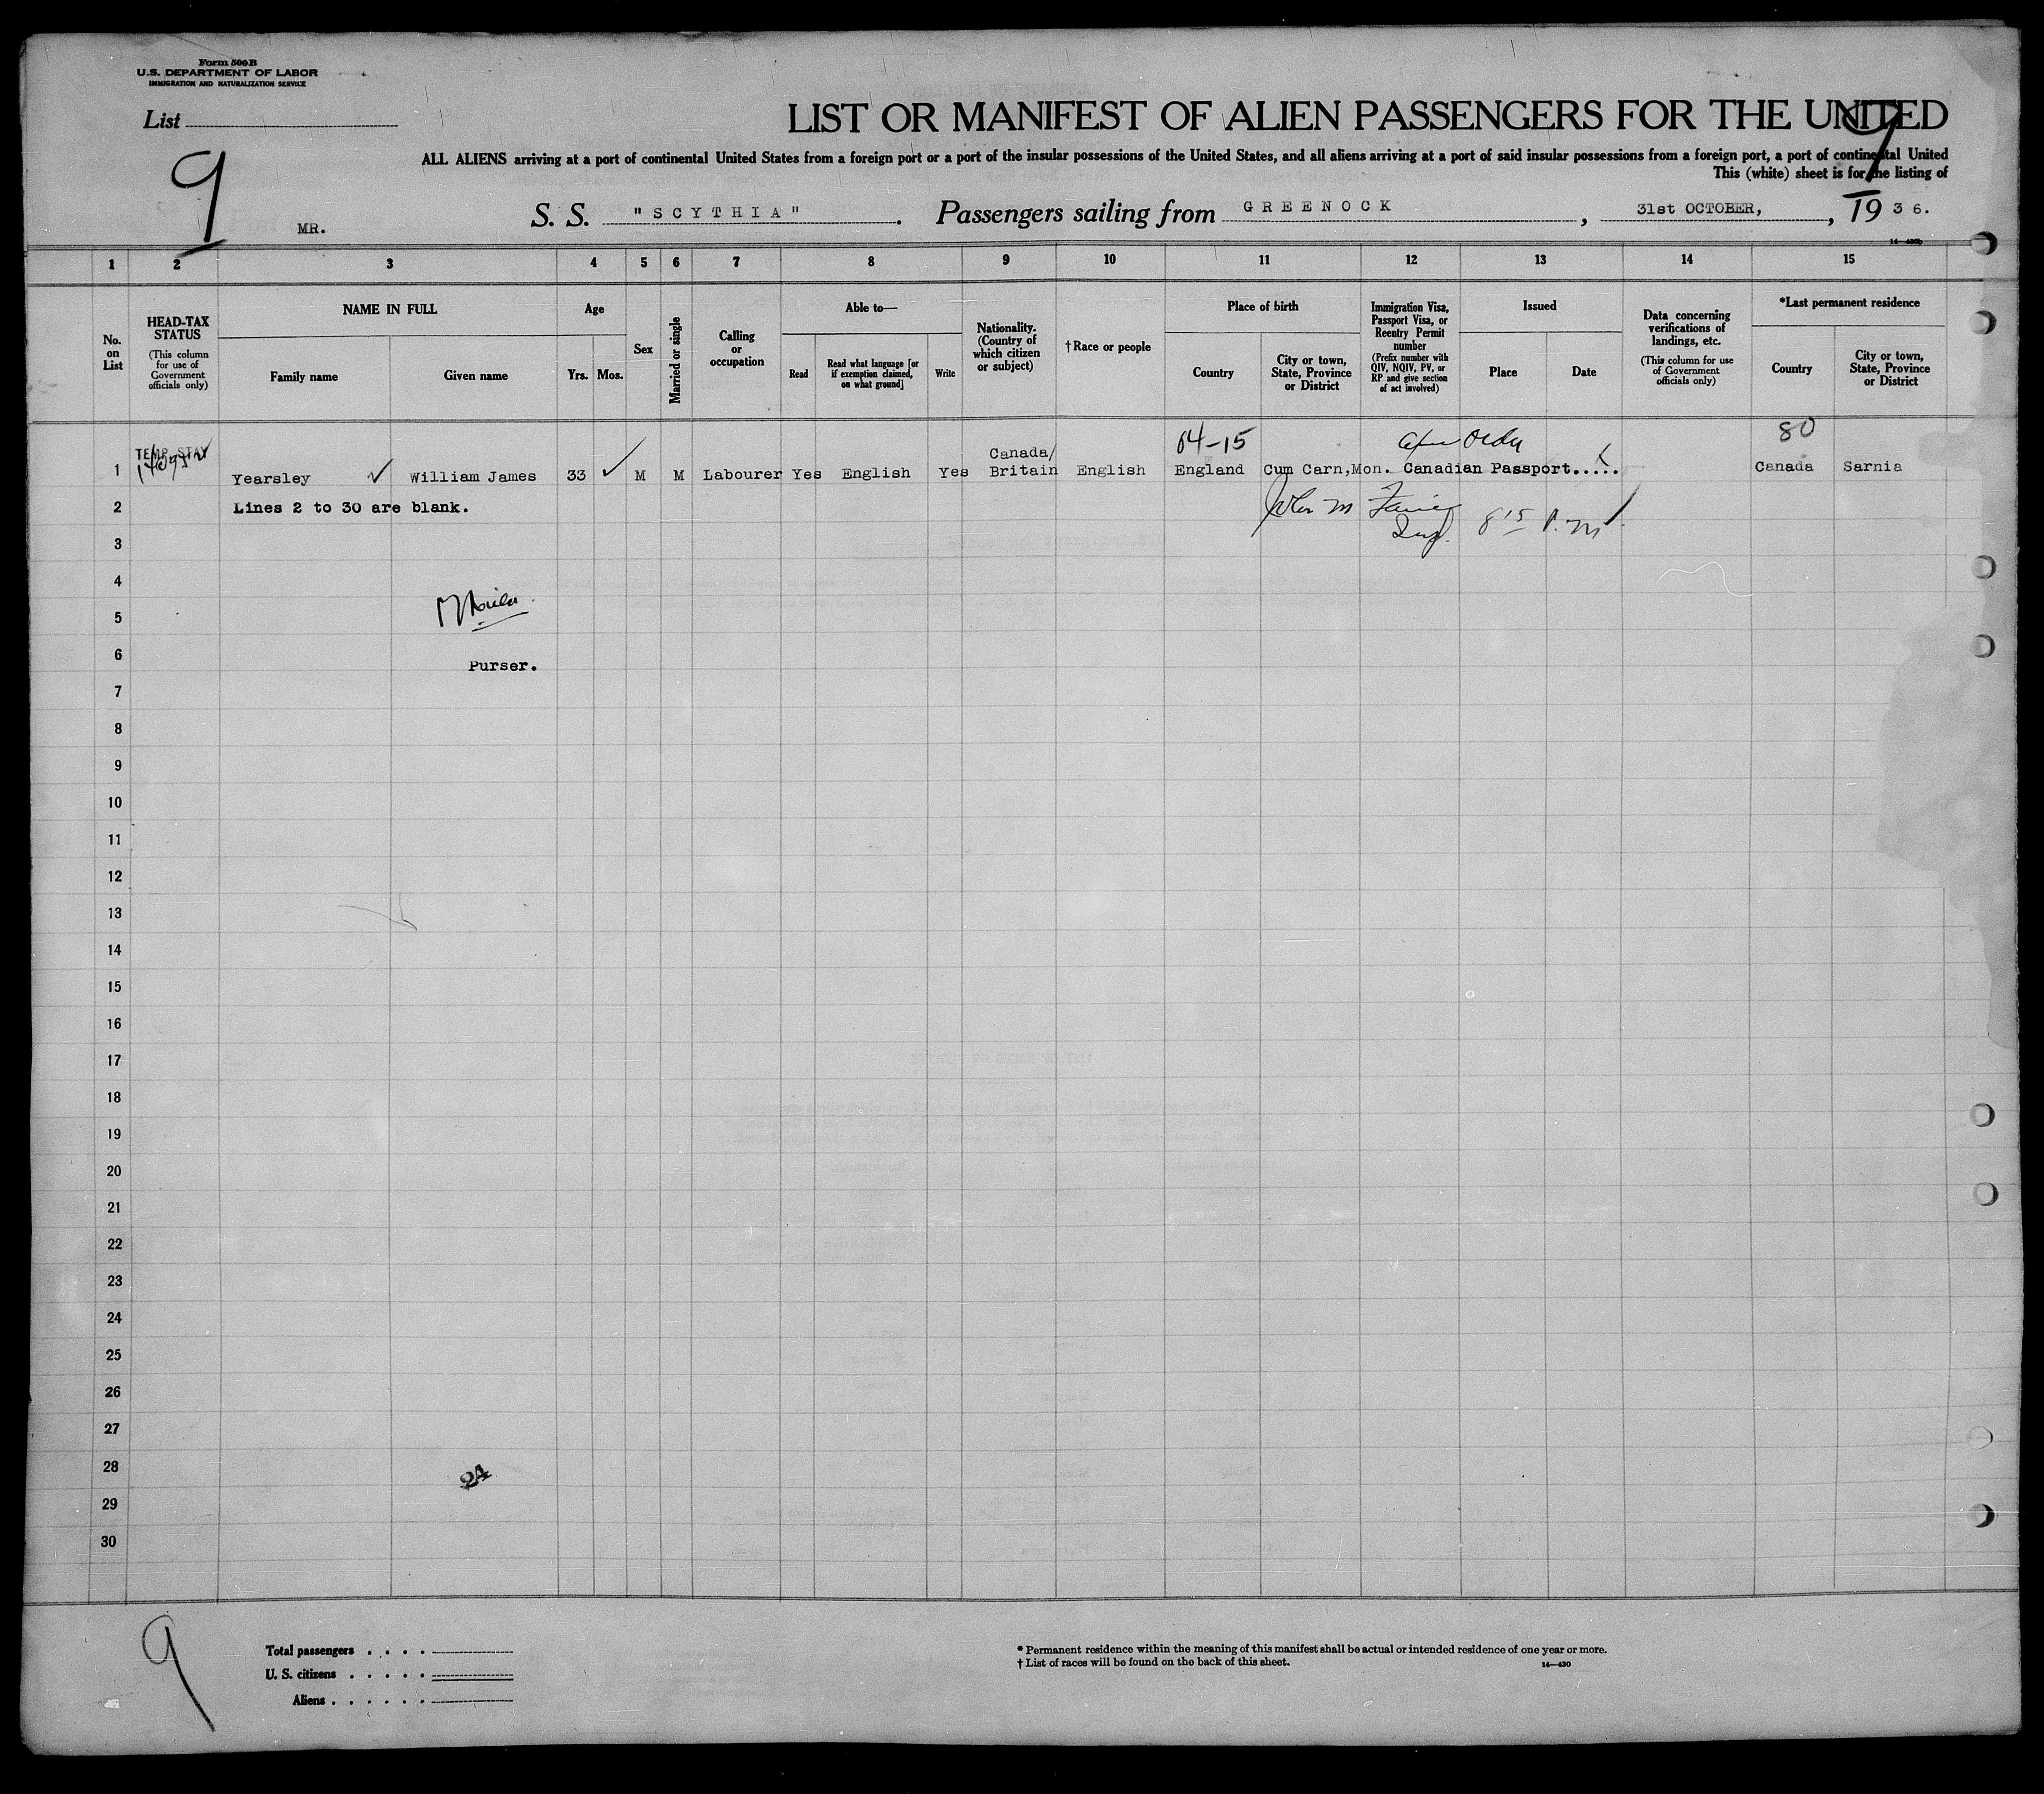 Form 500B
U.S. DEPARTMENT OF LABOR
IMMIGRATION AND NATURALIZATION SERVICE
List
9
MR.
LIST OR MANIFEST OF ALIEN PASSENGERS FOR THE UNITED
9
ALL ALIENS arriving at a port of continental United States from a foreign port or a port of the insular possessions of the United States, and all aliens arriving at a port of said insular possessions from a foreign port, a port of continental United
This (white) sheet is for the listing of
S. S. "SCYTHIA". Passengers sailing from GREENOCK, 31st OCTOBER, , 1936.
14—430b
1 2 3 4 5 6 7 8 9 10 11 12 13 14 15
No. on List
HEAD-TAX STATUS
(This column for use of Government officials only)
NAME IN FULL
Family name
Given name
Age
Yrs.
Mos.
Sex
Married or single
Calling or occupation
Able to—
Read
Read what language [or if exemption claimed, on what ground]
Write
Nationality. (Country of which citizen or subject)
†Race or people
Place of birth
Country
City or town, State, Province or District
Immigration Visa, Passport Visa, or Reentry Permit number
(Prefix number with QIV, NQIV, PV, or RP and give section of act involved)
Issued
Place
Date
Data concerning verifications of landings, etc.
(This column for use of Government officials only)
*Last permanent residence
Country
City or town, State, Province or District
TEMP. STAY
04-15
80
1 Yearsley William James 33 M M Labourer Yes English Yes Canada/Britain English England Cum Carn,Mon. Canadian Passport..... Canada Sarnia
2 Lines 2 to 30 are blank.
Insp. 8 15 P.M
3
4
5
6 Purser.
7
8
9
10
11
12
13
14
15
16
17
18
19
20
21
22
23
24
25
26
27
28
24
29
30
9
Total passengers . . . .
U. S. citizens . . . . .
Aliens . . . . . .
* Permanent residence within the meaning of this manifest shall be actual or intended residence of one year or more.
† List of races will be found on the back of this sheet.
14—430